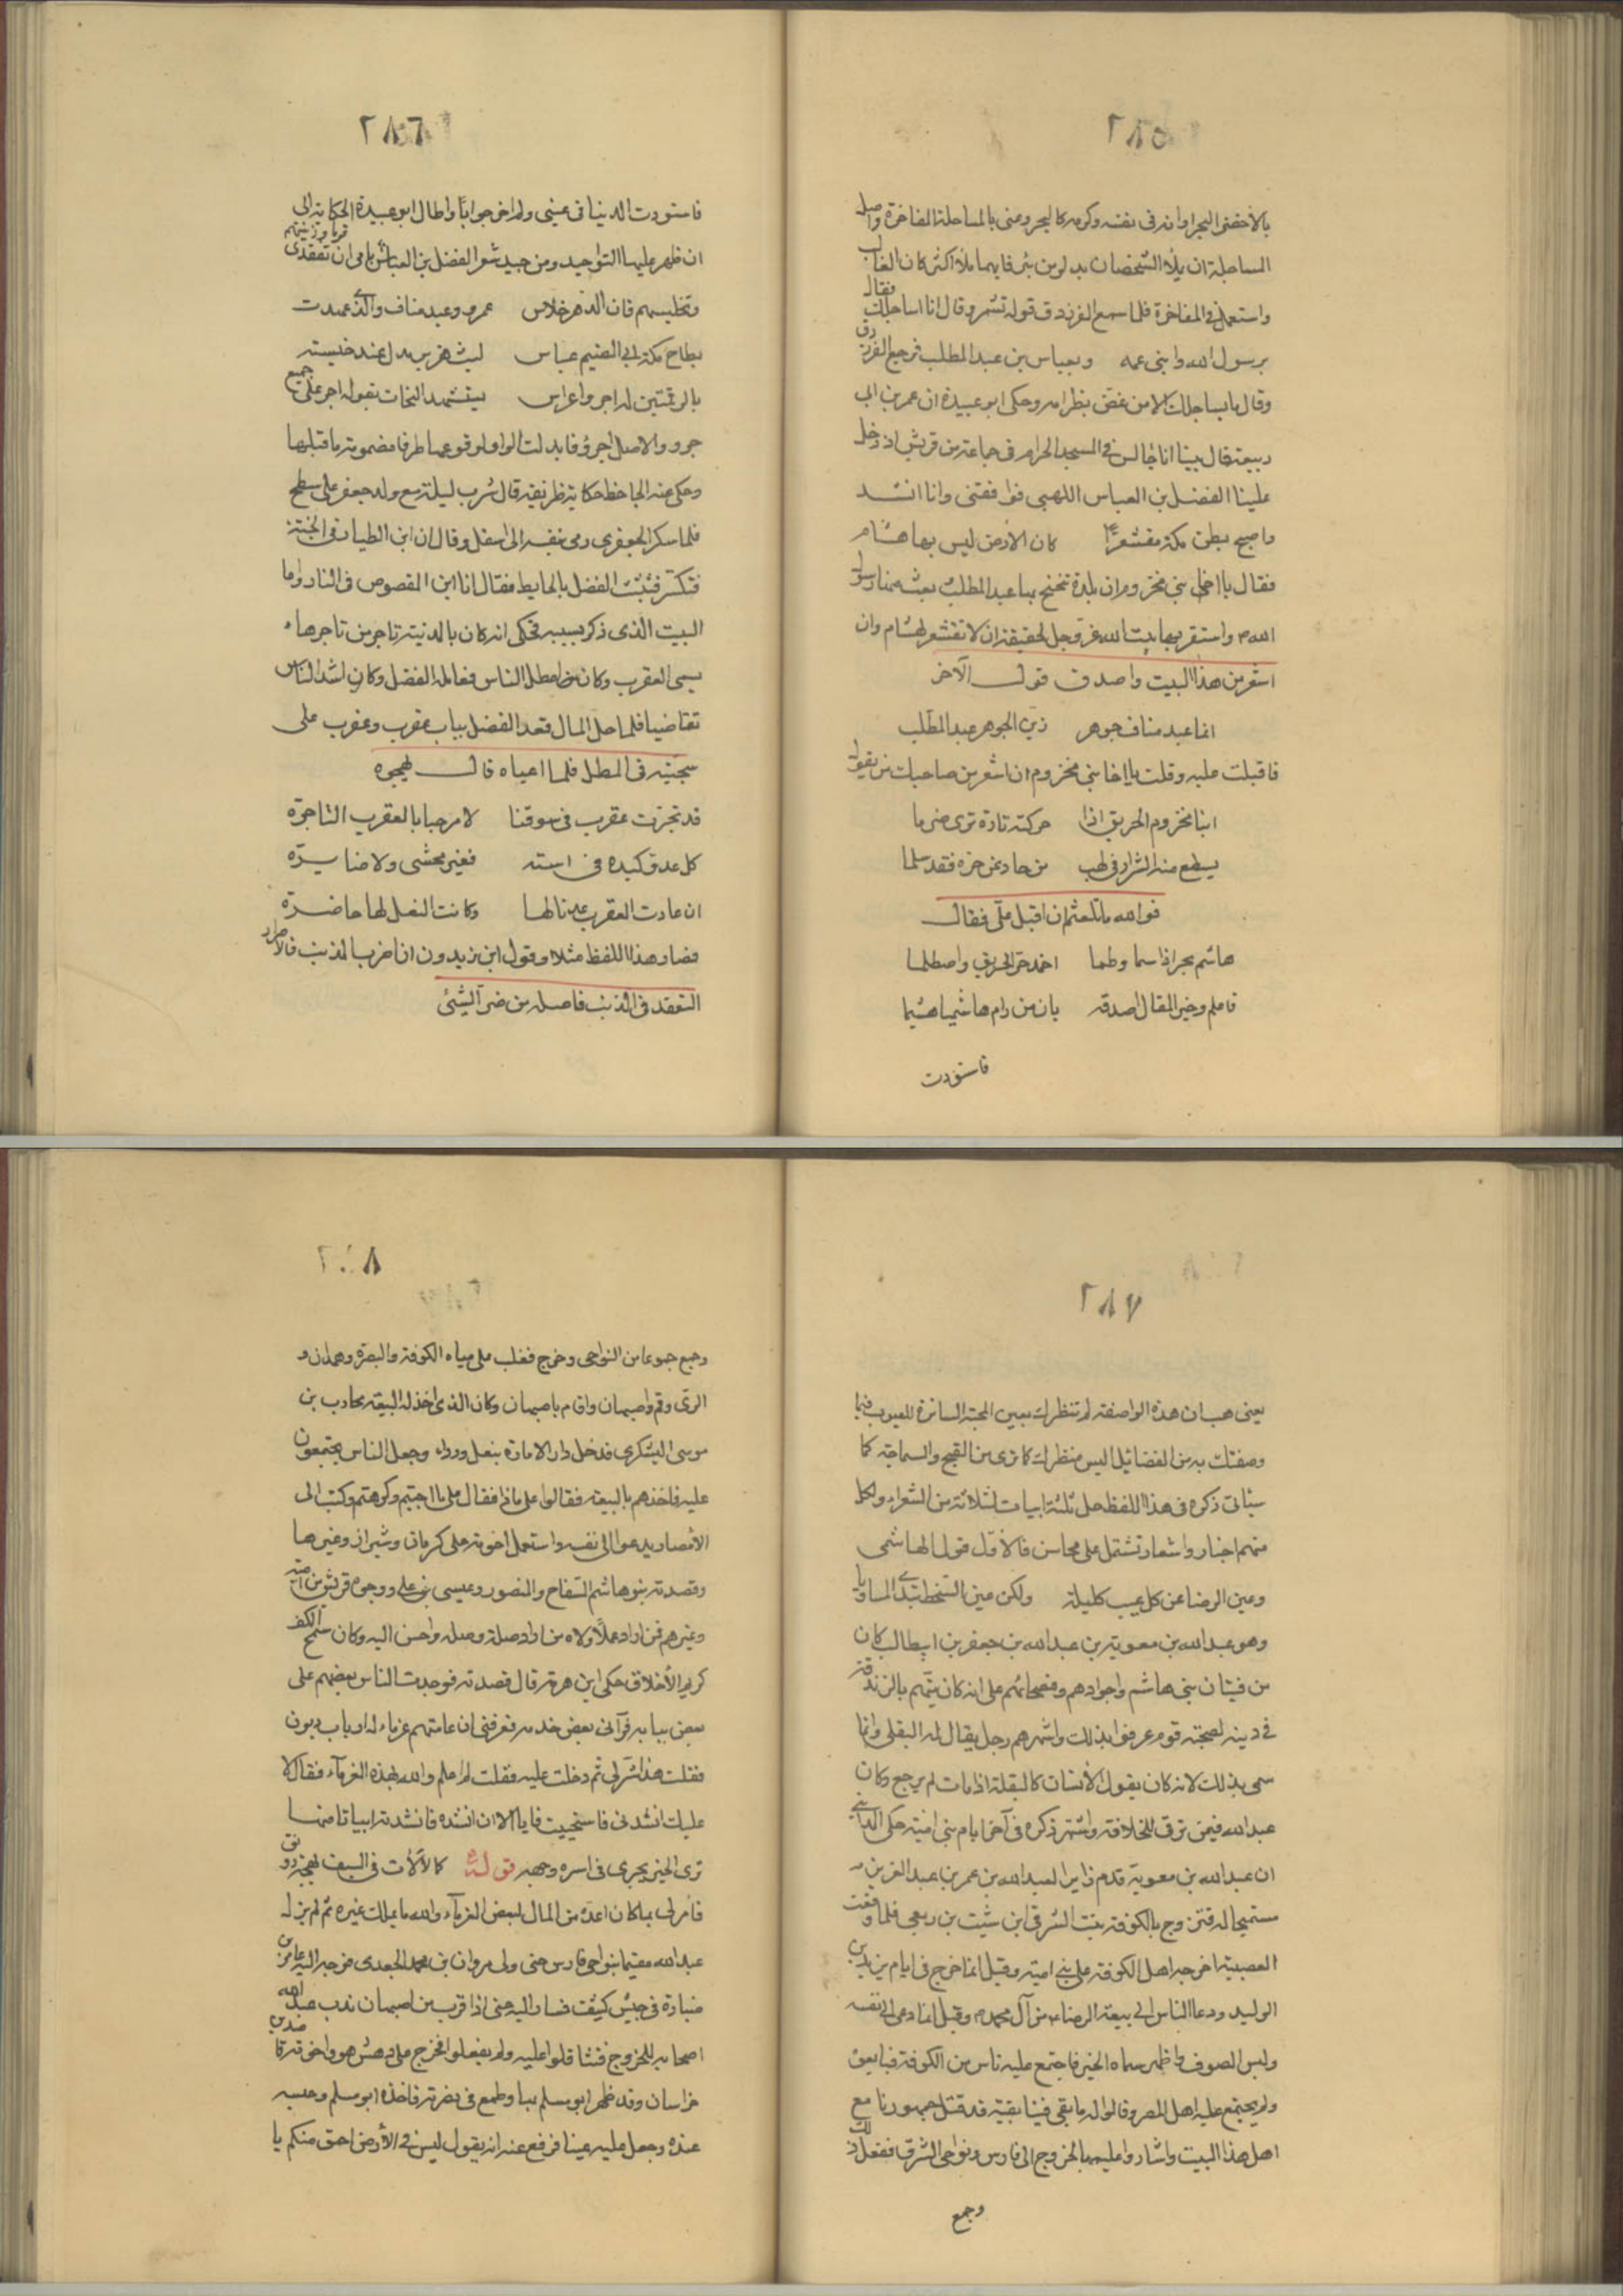 ٢٨٥
بالأخضر البحر وانه فى نفسه وكرمه كالبحر وعنى بالمساجلة المفاخرة واصل
المساجلة ان يملأ الشخصان بدلوين من بئر فايهما ملأ اكثر كان الغالب
واستعمل فى المفاخرة فلما سمع الفرزدق قوله تشمر وقال انا اساجلك فقال
برسول الله وابنى عمه وبعباس بن عبد المطلب فرجع الفرزدق
وقال ما يساجلك الا من عض بظر امه وحكى ابو عبيدة ان عمر بن ابى
ربيعة قال بينا انا جالس فى المسجد الحرام فى جماعة من قريش اذ دخل
علينا الفضل بن العباس اللهبى فوافقنى وانا انشد
واصبح بطن مكة مقشعرا كان الارض ليس بها هشام
فقال يا اخا بنى مخزوم ان بلدة تبحبح بها عبد المطلب بعث منها رسول
الله م واستقر بها بيت الله عز وجل لحقيقة ان لا تقشعر لهشام وان
اشعر من هذا البيت واصدق قول الآخر
انما عبد مناف جوهر زين الجوهر عبد المطلب
فاقبلت عليه وقلت يا اخا بنى مخزوم ان اشعر من صاحبك من يقول
ابنا مخزوم الحريق اذا حركته تارة ترى ضرما
يسطع منه الشرار فى لهب من حاد عن حره فقد سلما
فوالله ما تلعثم ان اقبل على فقال
هاشم بحر اذا سما وطما اخمد حر الحريق واصطلما
فاعلم وخير المقال اصدقه بان من رام هاشما هشما
فاسودت
٢٨٦
فاسودت الدنيا فى عينى ولم احر جوابا واطال ابو عبيدة الحكاية الى
ان ظهر عليها التوليد ومن جيد شعر الفضل بن العباس يا مى ان تفقدى قوما رزئتهم
وتخليسهم فان الدهر خلاس عمرو وعبد مناف والذى عهدت
بطاح مكة ابى الضيم عباس ليث هزبر مدل عند خيسته
بالرقمتين له اجر واعراس يستشهد النحات بقوله اجر على جميع
جرو والاصل اجرؤ فابدلت الواو لوقوعها طرفا مضمومة ما قبلها
وحكى عنه الجاحظ حكاية ظريفة قال شرب ليلة مع ولد جعفر على سطح
فلما سكر الجعفرى رمى بنفسه الى اسفل وقال ان ابن الطيار فى الجنة
فتكسر فتشبث الفضل بالحايط فقال انا ابن المقصوص فى النار واما
البيت الذى ذكر بسببه فحكى انه كان بالمدينة تاجر من تاجرها
يسمى العقرب وكان من امطل الناس فعامله الفضل وكان اشد الناس
تقاضيا فلما حل المال قعد الفضل بباب عقرب وعقرب على
سجيته فى المطل فلما اعياه قال يهجوه
قد تجرت عقرب فى سوقنا لا مرحبا بالعقرب التاجرة
كل عدو كيده فى استه فغير مخشى ولا ضايرة
ان عادت العقرب عدنا لها وكانت النعل لها حاضرة
فصار هذا اللفظ مثلا وقول ابن زيدون ان اضر بالمذنب فالاضرار
التعقد فى الذنب فاصله من ضر الشئ
٢٨٧
يعنى هب ان هذه الواصفة لم تنظرك بعين المحبة الساترة للعيوب فيما
وصفتك به من الفضائل اليس منظرك كما ترى من القبح والسماجة كما
سياتى ذكره فى هذا اللفظ حل ثلثة ابيات لثلاثة من الشعراء ولكل
منهم اخبار واشعار تشتمل على محاسن فالاول قول الهاشمى
وعين الرضا عن كل عيب كليلة ولكن عين السخط تبدى المساويا
وهو عبد الله بن معوية بن عبد الله بن جعفر بن ابيطالب كان
من فتيان بنى هاشم واجوادهم وفصحائهم على انه كان يتهم بالزندقة
فى دينه لصحبته قوم عرفوا بذلك واشهرهم رجل يقال له البقلى وانما
سمى بذلك لانه كان يقول الانسان كالبقلة اذا مات لم يرجع وكان
عبد الله فيمن ترق للخلافة واشتهر ذكره فى آخر ايام بنى امية حكى المداينى
ان عبد الله بن معوية قدم زايرا لعبد الله بن عمر بن عبد العزيز
مستميحا له فتزوج بالكوفة بنت الشرقى ابن شبث بن ربعى فلما وقعت
العصبية اخرجه اهل الكوفة على بنى امية وقيل انما خرج فى ايام يزيد بن
الوليد ودعا الناس الى بيعة الرضا من آل محمد م وقيل انما دعى الى نفسه
ولبس الصوف واظهر سماه الخير فاجتمع عليه ناس من الكوفة فبايعوه
ولم يجتمع عليه اهل المصر وقالوا له ما بقى فينا بقية قد قتل جمهورنا مع
اهل هذا البيت واشاروا عليه بالخروج الى فارس ونواحى الشرق ففعل ذلك
وجمع
٢٨٨
وجمع جموعا من النواحى وخرج فغلب على مياه الكوفة والبصرة وهمدان و
الرى وقم واصبهان واقام باصبهان وكان الذى اخذ له البيعة محارب بن
موسى اليشكرى فدخل دار الامارة بنعل ورداء وجعل الناس يجتمعون
عليه فاخذهم بالبيعة فقالوا على ماذا فقال على ما احببتم وكرهتم وكتب الى
الأمصار يدعوا الى نفسه واستعمل اخوته على كرمان وشيراز وغيرها
وقصدته بنو هاشم السفاح والمنصور وعيسى بن على ووجوه قريش من امية
وغيرهم فمن اراد عملا ولاه من اراد صلة وصله واحسن اليه وكان سمح الكف
كريم الأخلاق حكى ابن هرمة قال قصدته فوجدت الناس بعضهم على
بعض ببابه فرآنى بعض خدمه فعرفنى ان عامتهم غرماء له ارباب ديون
فقلت هذا شر لى ثم دخلت عليه فقلت لم اعلم والله بهذه الغرماء فقال لا
عليك انشدنى فاستحييت فابى الا ان انشده فانشدته ابياتا منها
ترى الخير يجرى فى اسره وجهه قوله كالألآت فى السيف بهجة رونق
فامر لى بما كان اعده من المال لبعض الغرماء والله ما يملك غيره ثم لم يزل
عبد الله مقيما بنواحى فارس حتى ولى مروان بن محمد الجعدى فوجه اليه عامر بن
ضبارة فى جيش كثيف فسار اليه حتى اذا قرب من اصبهان ندب عبد الله
اصحابه للخروج فتثاقلوا عليه ولم يفعلوا فخرج على دهش هو واخوته قاصدين
خراسان وقد ظهر ابو مسلم بها وطمع فى نصرته فاخذه ابو مسلم وحبسه
عنده وجعل عليه عينا فرفع عنه انه يقول ليس فى الأرض احق منكم يا